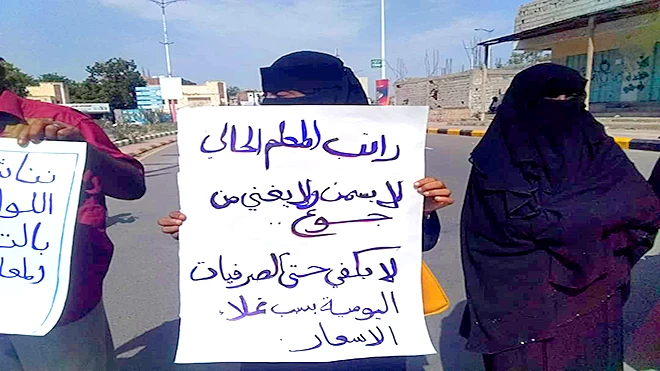 راتب المعلم الحالي
لا يسمن ولا يغني من
جــوع ..
لا يكفي حتى الصرفيات
اليومية بسبب غلاء
الاسعار .
اللوا
بالت